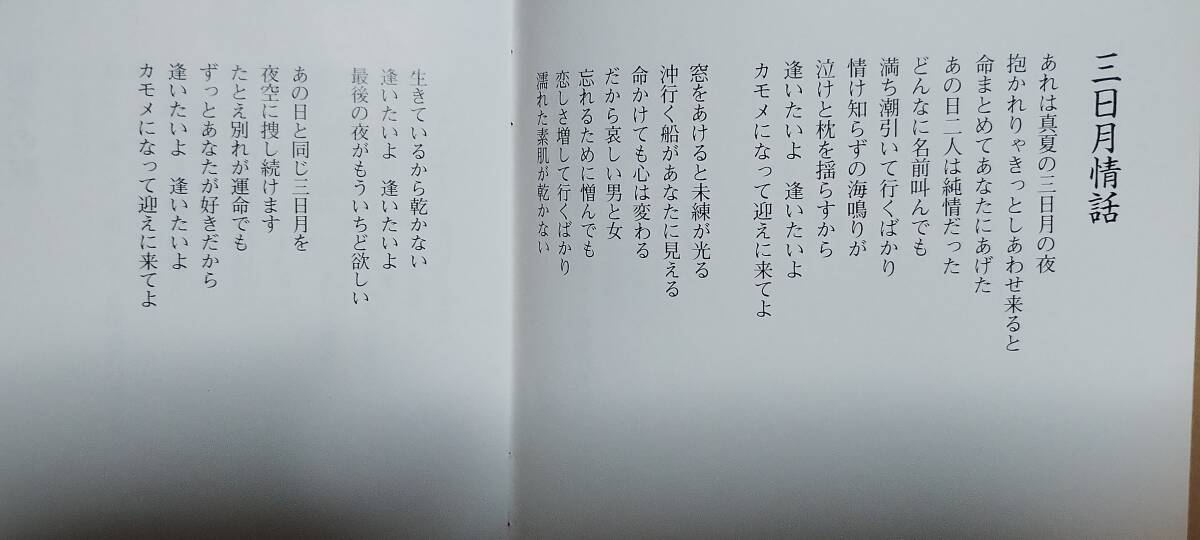 三日月情話
あれは真夏の三日月の夜
抱かれりゃきっとしあわせ来ると
命まとめてあなたにあげた
あの日二人は純情だった
どんなに名前叫んでも
満ち潮引いて行くばかり
情け知らずの海鳴りが
泣けと枕を揺らすから
逢いたいよ　逢いたいよ
カモメになって迎えに来てよ
窓をあけると未練が光る
沖行く船があなたに見える
命かけても心は変わる
だから哀しい男と女
忘れるために憎んでも
恋しさ増して行くばかり
濡れた素肌が乾かない
生きているから乾かない
逢いたいよ　逢いたいよ
最後の夜がもういちど欲しい
あの日と同じ三日月を
夜空に捜し続けます
たとえ別れが運命でも
ずっとあなたが好きだから
逢いたいよ　逢いたいよ
カモメになって迎えに来てよ